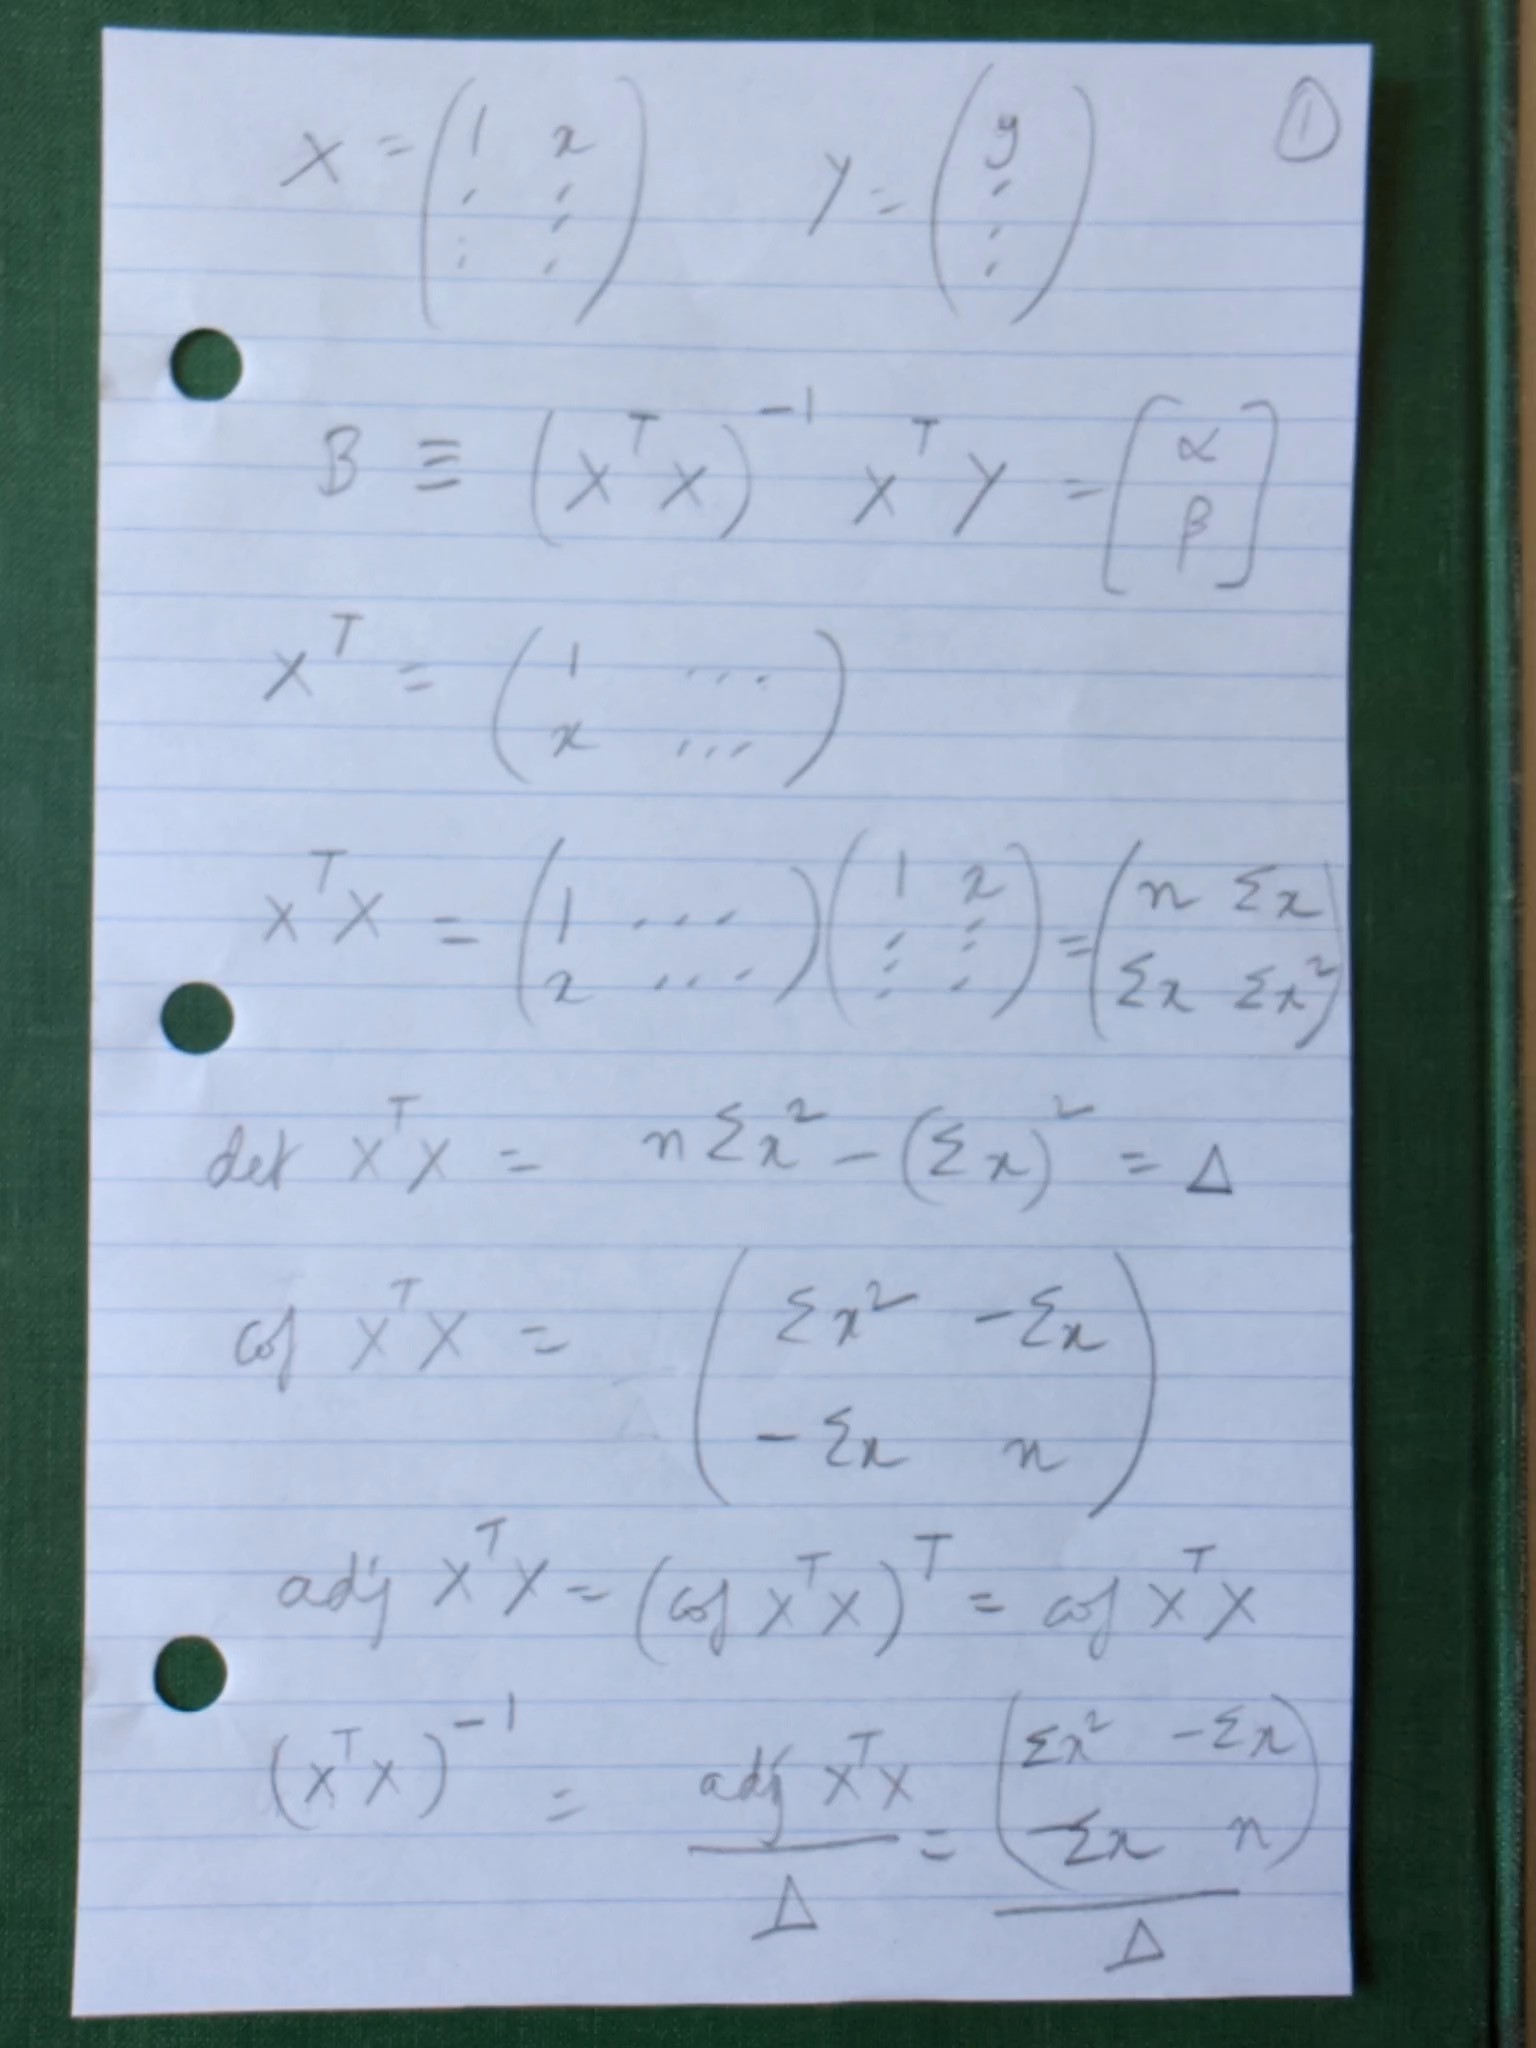 X = ( 1 x ⋮ ⋮ ) Y = ( y ⋮ ) ①
B ≡ (XᵀX)⁻¹ XᵀY = [ α β ]
Xᵀ = ( 1 ... x ... )
XᵀX = ( 1 ... x ... ) ( 1 x ⋮ ⋮ ) = ( n Σx Σx Σx² )
det XᵀX = nΣx² - (Σx)² = Δ
cof XᵀX = ( Σx² -Σx -Σx n )
adj XᵀX = (cof XᵀX)ᵀ = cof XᵀX
(XᵀX)⁻¹ = adj XᵀX / Δ = ( Σx² -Σx -Σx n ) / Δ